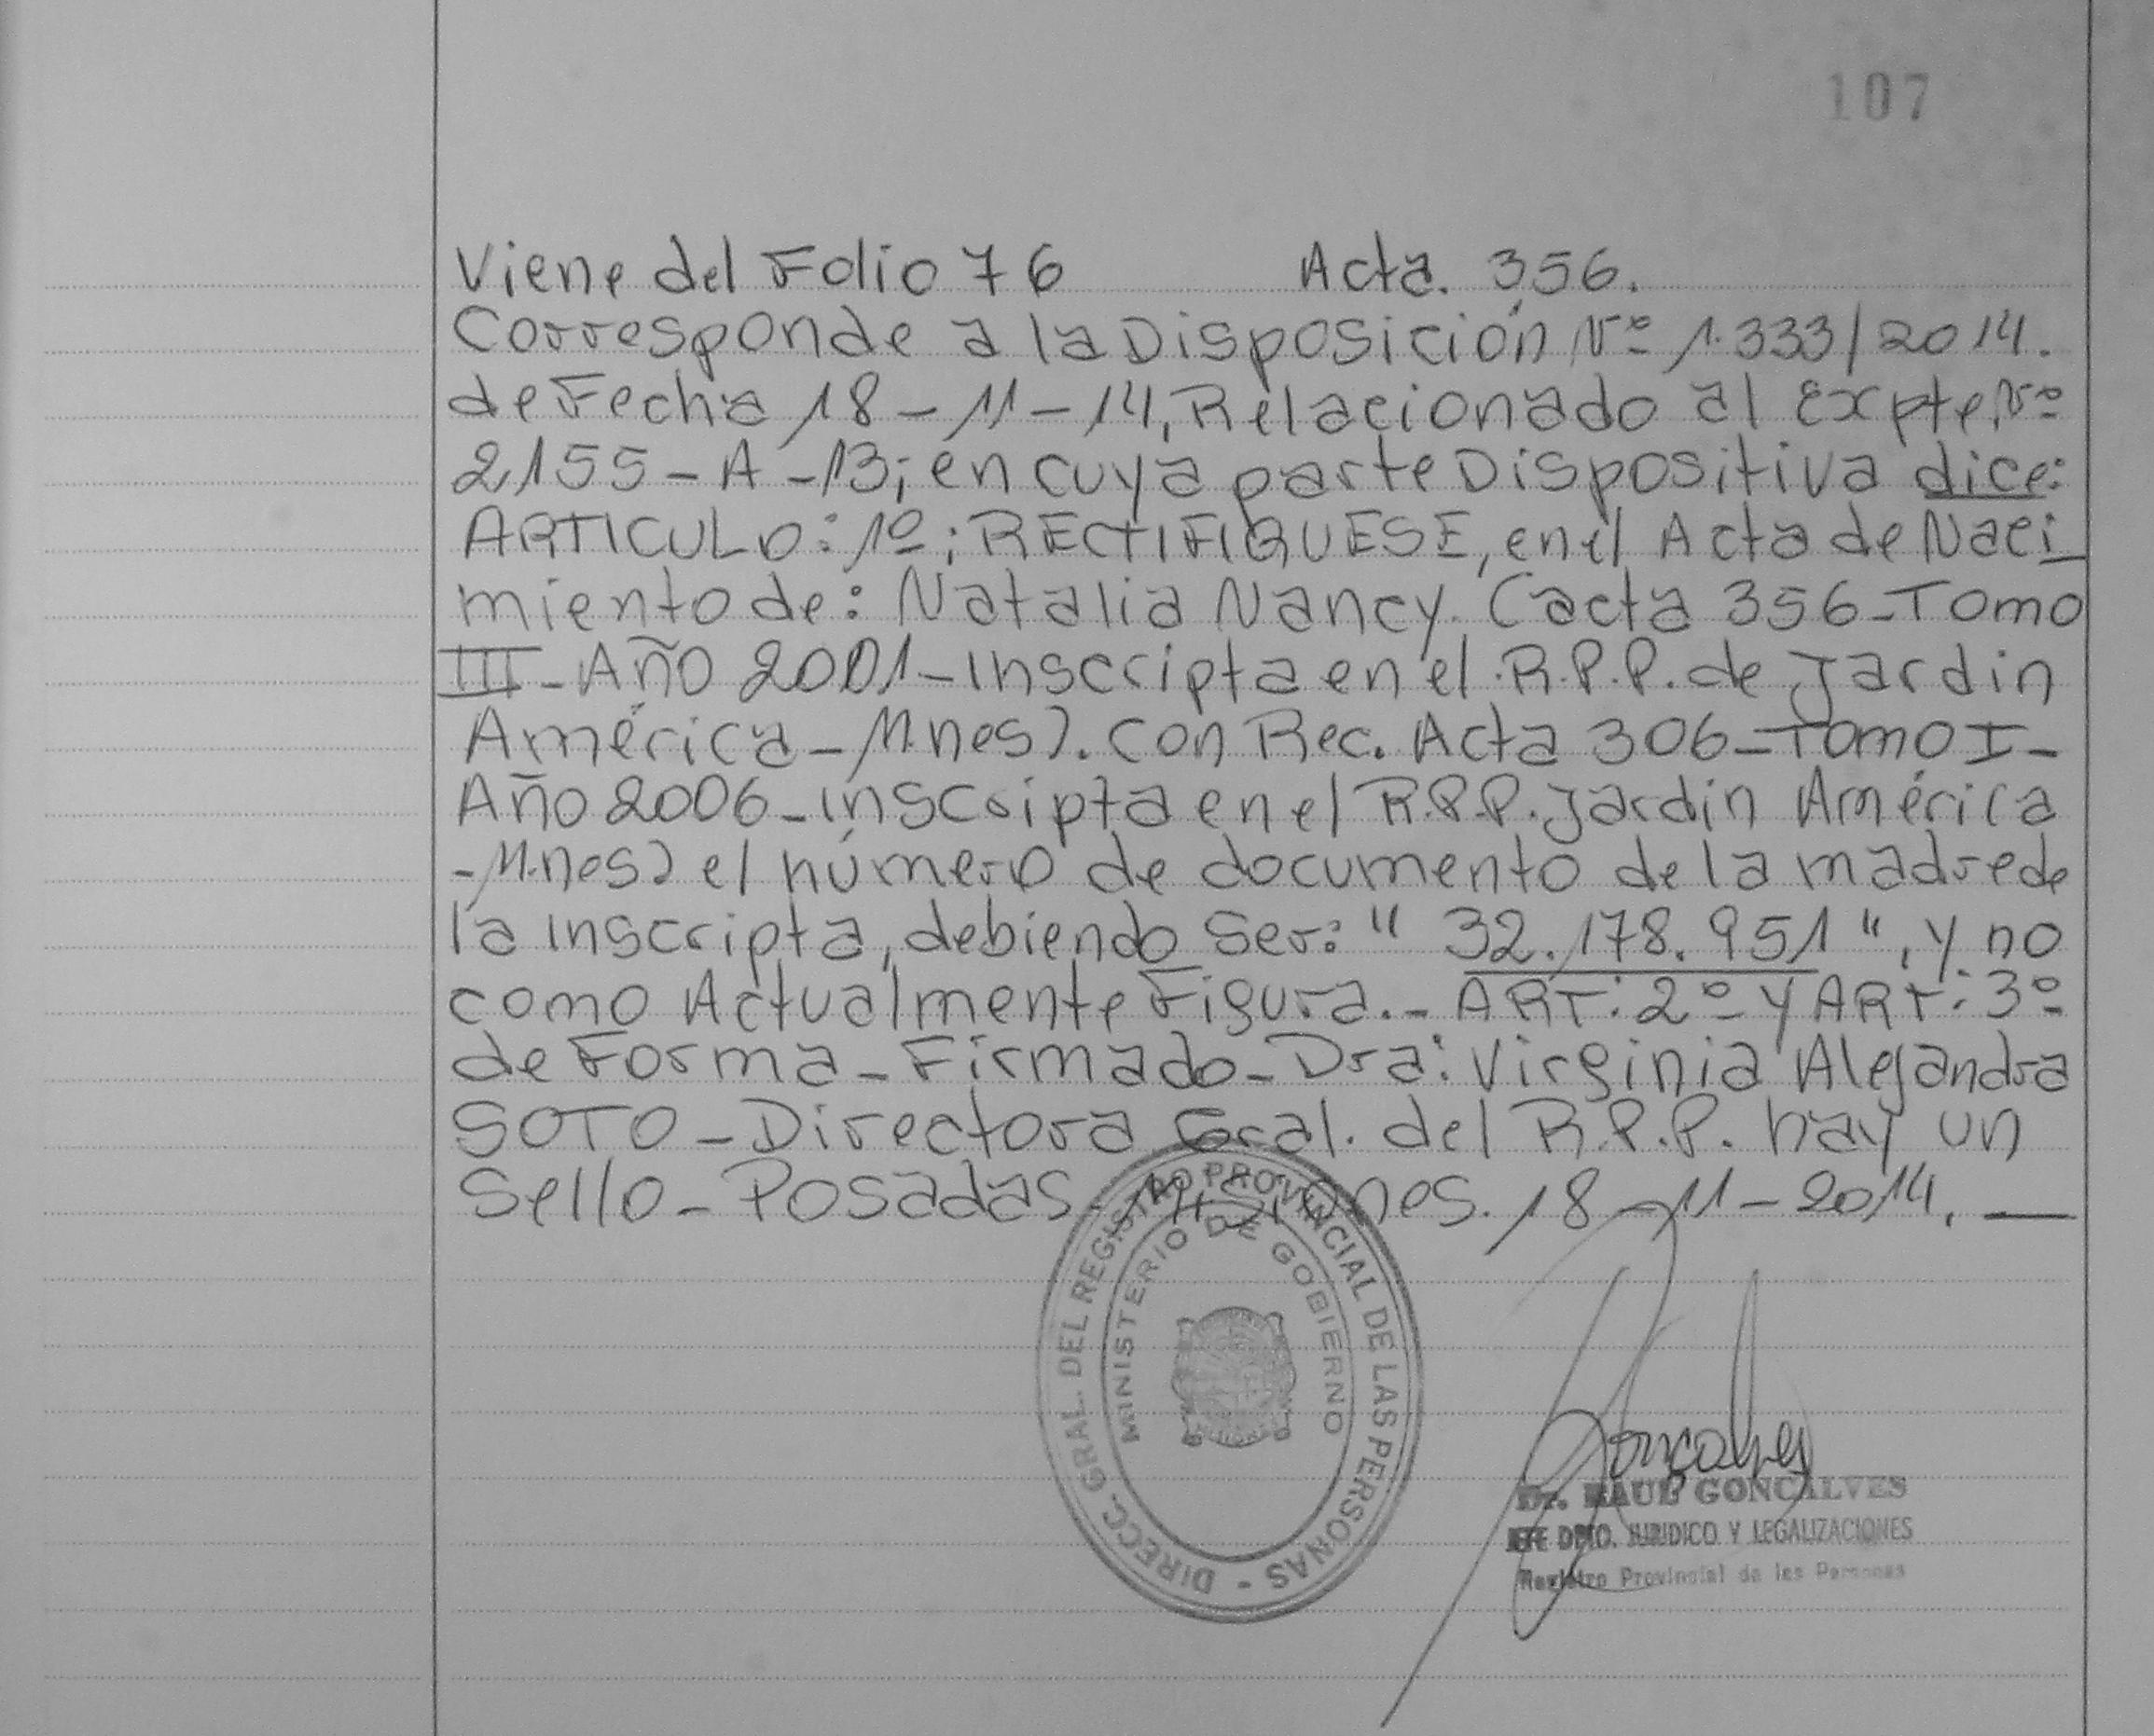 107
Viene del Folio 76 Acta. 356.
Corresponde a la Disposición Nº 1.333/2014.
de Fecha 18-11-14, Relacionado al Expte, Nº
2155-A-13; en cuya parte Dispositiva dice:
ARTICULO: 1º; RECTIFIQUESE, en el Acta de Naci_
miento de: Natalia Nancy. (acta 356-Tomo
III-Año 2001-Inscripta en el R.P.P. de Jardin
América-M.nes). Con Rec. Acta 306-Tomo I-
Año 2006-inscripta en el R.P.P. Jardin América
-M.nes) el número de documento de la madre de
la inscripta, debiendo Ser: " 32.178.951 ", y no
como Actualmente Figura.- ART: 2º Y ART: 3º
de Forma-Firmado-Dra: Virginia Alejandra
SOTO-Directora Gral. del R.P.P. hay un
Sello-Posadas Misiones. 18-11-2014. —
DIRECC. GRAL. DEL REGISTRO PROVINCIAL DE LAS PERSONAS -
MINISTERIO DE GOBIERNO
Gonçalves
Dr. RAUL GONCALVES
JEFE DPTO. JURIDICO Y LEGALIZACIONES
Registro Provincial de las Personas